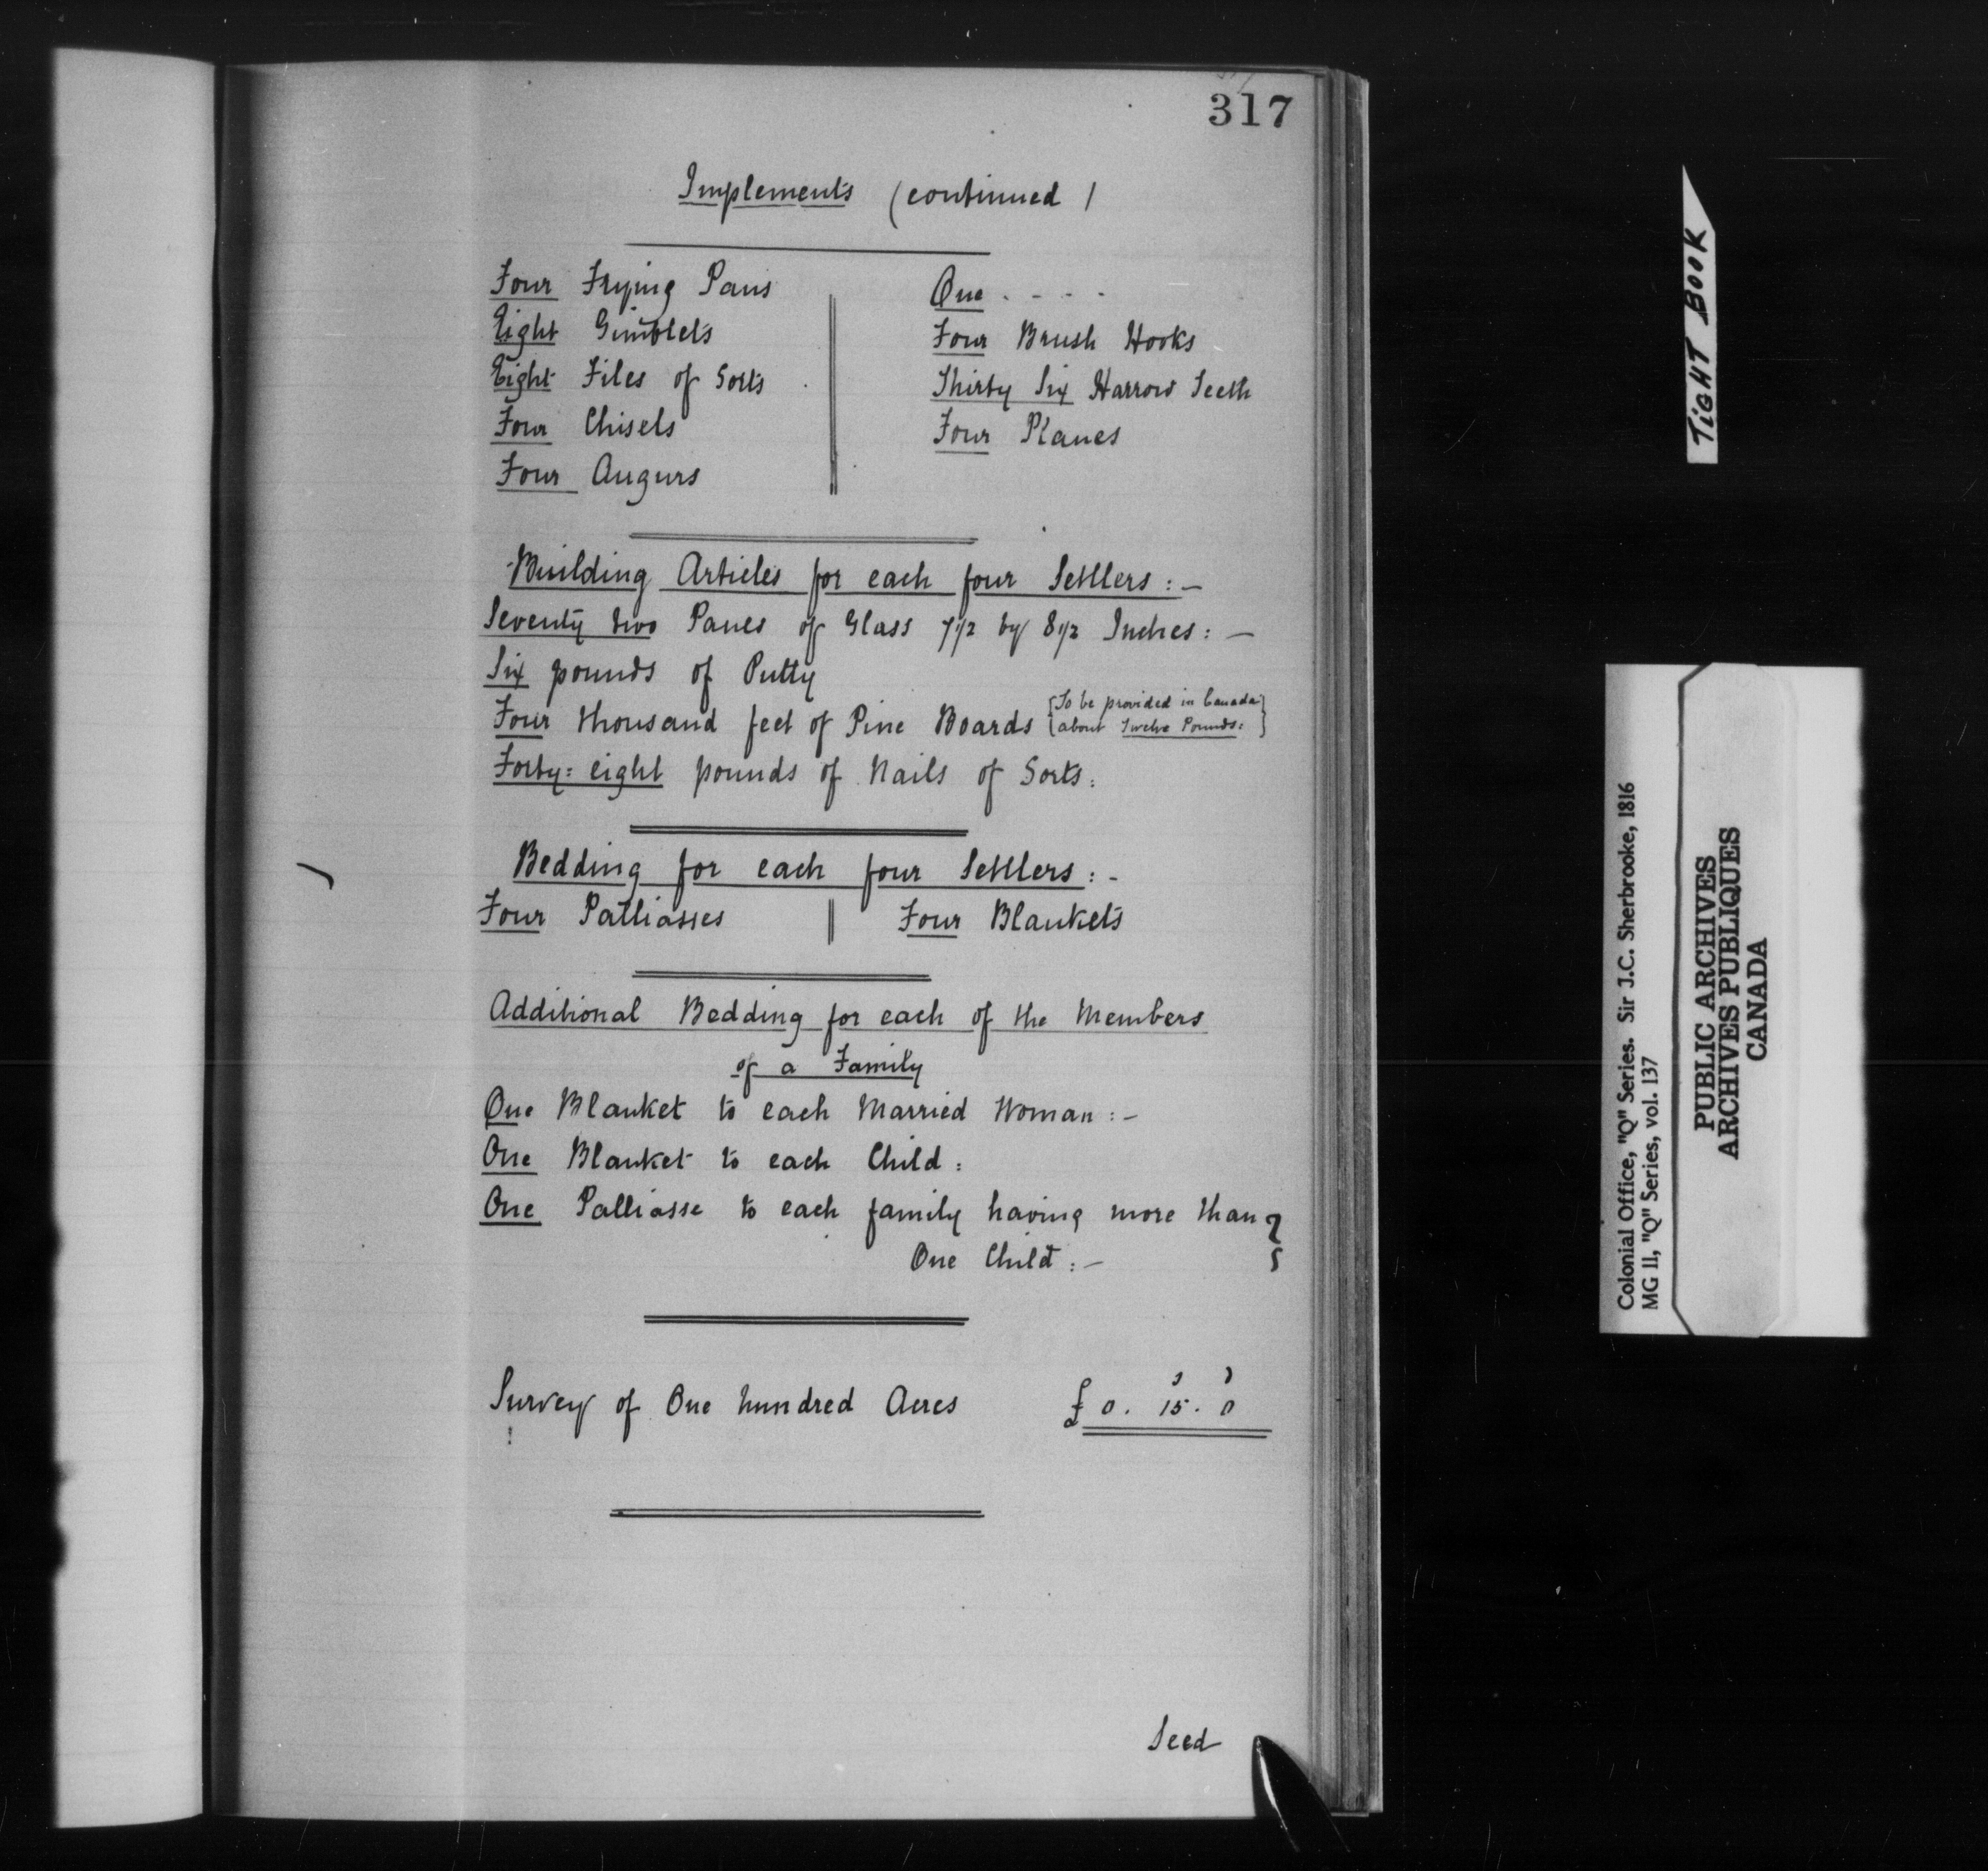 317
Implements (continued)
Four Frying Pans
Eight Gimblets
Eight Files of Sorts
Four Chisels
Four Augurs
One - - - -
Four Brush Hooks
Thirty Six Harrow Teeth
Four Planes
Building Articles for each four Settlers: -
Seventy two Panes of Glass 7 1/2 by 8 1/2 Inches: -
Six pounds of Putty
Four thousand feet of Pine Boards {To be provided in Canada}
{about Twelve Pounds:}
Forty=eight pounds of Nails of Sorts:
Bedding for each four Settlers: -
Four Palliasses || Four Blankets
Additional Bedding for each of the Members
of a Family
One Blanket to each Married Woman: -
One Blanket to each Child:
One Palliasse to each family having more than }
One Child: -
s d
Survey of One hundred Acres £0. 15. 0
Seed
TIGHT BOOK
Colonial Office, "Q" Series. Sir J.C. Sherbrooke, 1816
MG 11, "Q" Series, vol. 137
PUBLIC ARCHIVES
ARCHIVES PUBLIQUES
CANADA